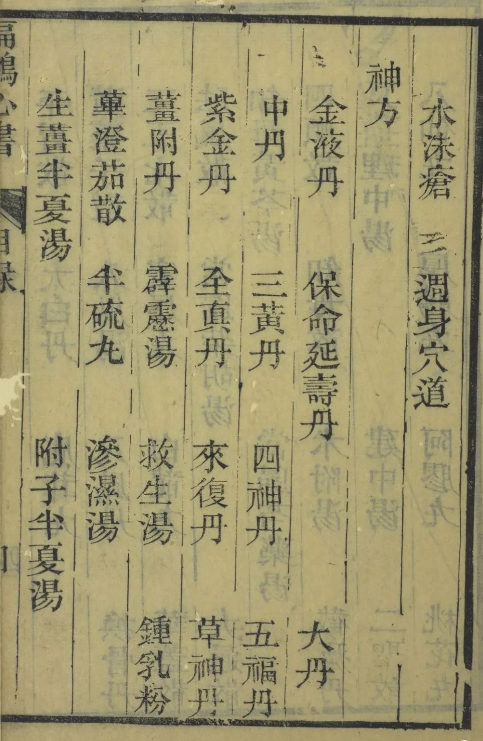 水沫瘡 週身穴道
神方
金液丹 保命延壽丹 大丹
中丹 三黃丹 四神丹 五福丹
紫金丹 全真丹 來復丹 草神丹
薑附丹 霹靂湯 救生湯 鍾乳粉
蓽澄茄散 半硫丸 滲濕湯
生薑半夏湯 附子半夏湯
扁鵲心書 目錄